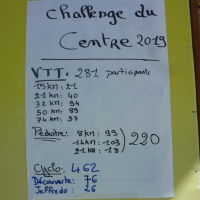 Challenge du
Centre 2019
VTT: 281 participants
15km: 21
21km: 40
32km: 94
50km: 89
74km: 37
Pédestre: 8km: 99
14km: 103
21km: 18
220
Cyclo: 462
Découverte: 76
Jeffredo: 26